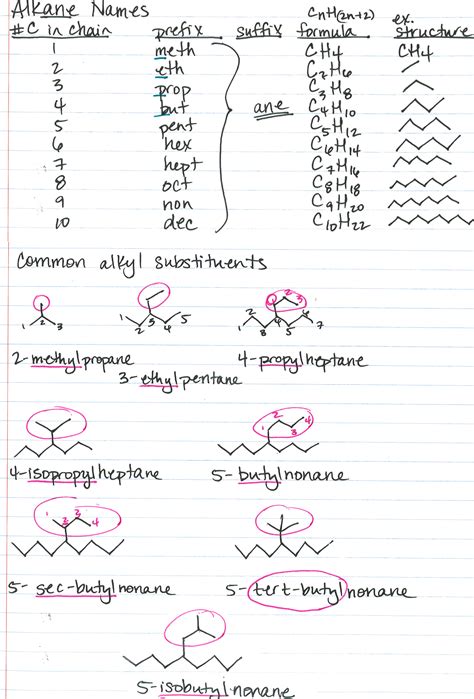 Alkane Names
#C in chain prefix suffix CnH(2n+2) formula ex. structure
1 meth CH4 CH4
2 eth C2H6
3 prop C3H8
4 but ane C4H10
5 pent C5H12
6 hex C6H14
7 hept C7H16
8 oct C8H18
9 non C9H20
10 dec C10H22
Common alkyl substituents
1 2 3
1 2 3 4 5
1 2 3
2 3 4 5 6 7
2-methylpropane 4-propylheptane
3-ethylpentane
1 2 3 4
4-isopropylheptane 5-butylnonane
1 2 3 4
5-sec-butylnonane 5-tert-butylnonane
5-isobutylnonane